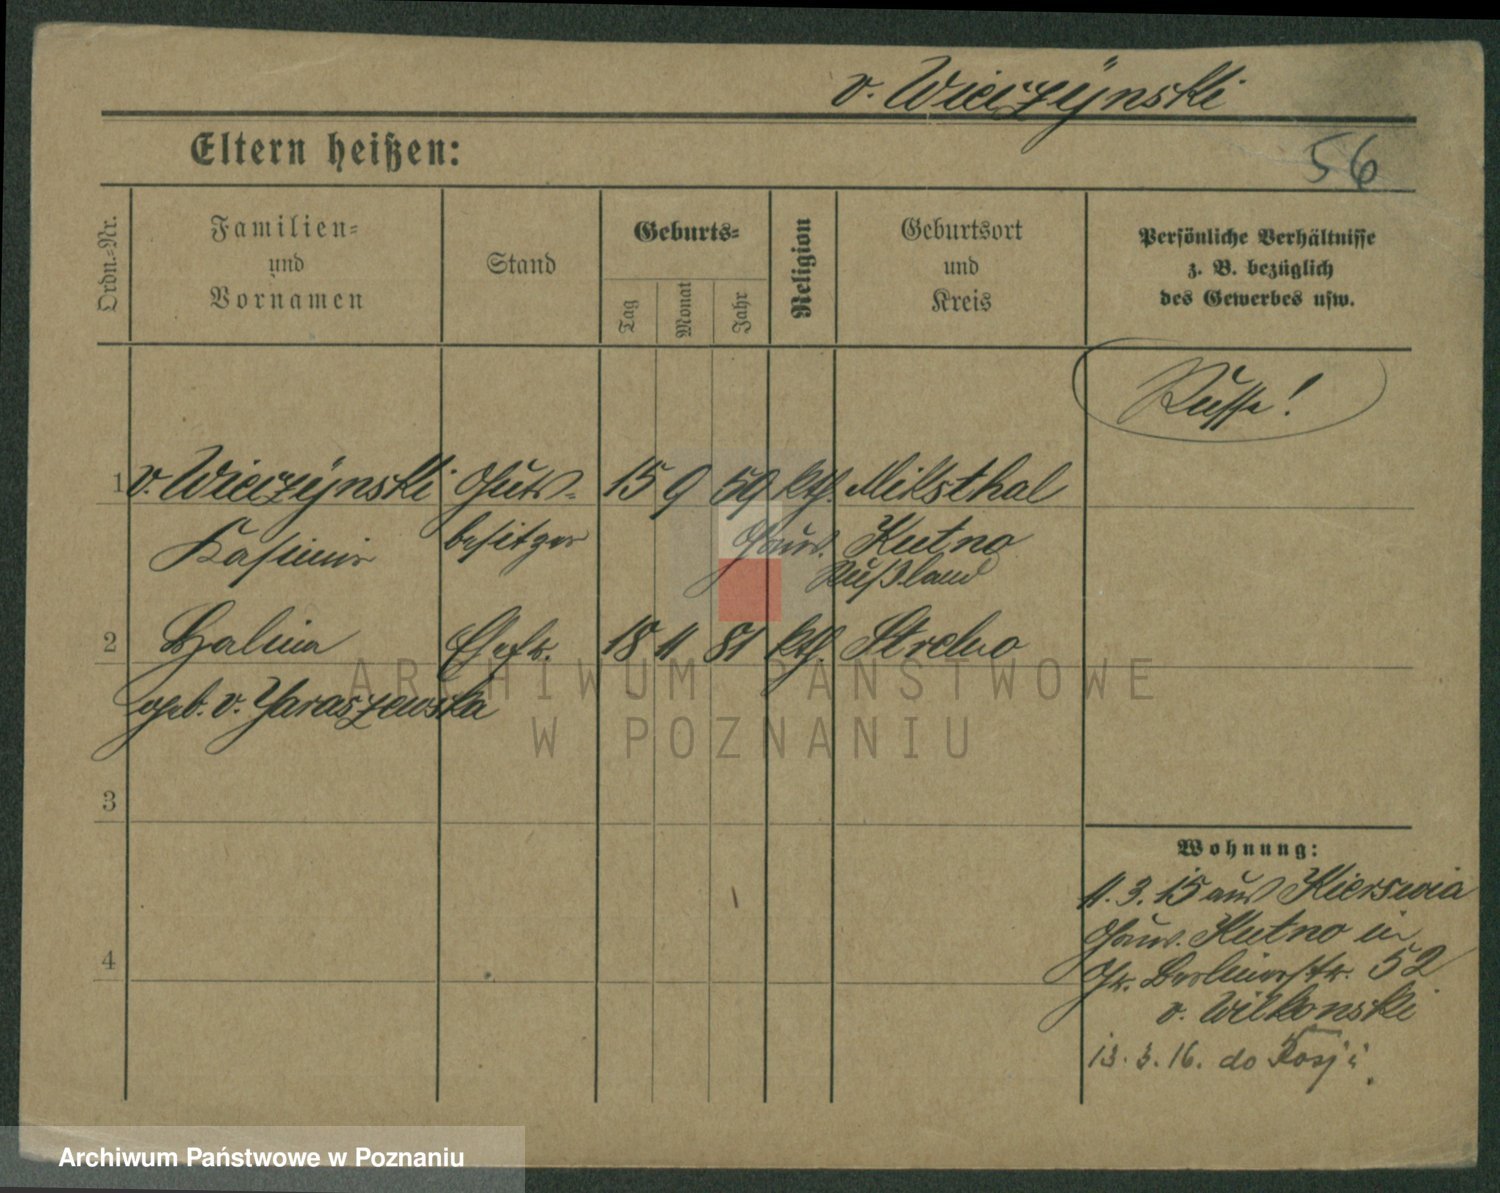 v. Wiczÿnski
56
Eltern heißen:
Ordn.-Nr.
Familien-
und
Vornamen
Stand
Geburts-
Tag
Monat
Jahr
Religion
Geburtsort
und
Kreis
Persönliche Verhältnisse
z. B. bezüglich
des Gewerbes usw.
Russe!
1 v. Wiczÿnski Guts- 15 9 59 kth. Milsthal
Kasimir besitzer Gouv. Kutno
Rußland
2 Halina Ehefr. 18 11 81 kth. Strelno
geb. v. Jaraszewska
3
4
Wohnung:
11.3.15 aus
Gouv. Kutno in
Gr. Berlinerstr. 52
v. Wilkonski
13.3.16. do Rosji.
ARCHIWUM PAŃSTWOWE
W POZNANIU
Archiwum Państwowe w Poznaniu